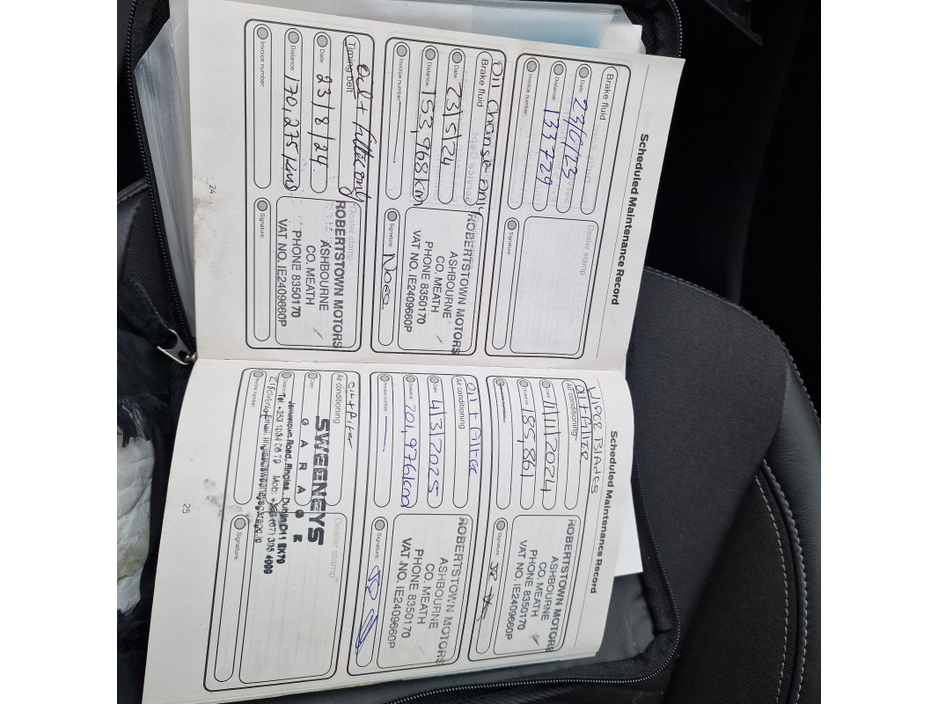 Scheduled Maintenance Record
Brake fluid
Date:
Distance: 133729
Invoice number:
Dealer stamp
Signature
Oil change only
Brake fluid
Date: 23/5/24
Distance: 153,968km
Invoice number:
ROBERTSTOWN MOTORS
ASHBOURNE
CO. MEATH
PHONE 8350170
VAT NO. IE2409660P
Signature
Oil + filter only
Timing belt
Date: 23/8/24
Distance: 170,275 kms
Invoice number:
Dealer stamp
ROBERTSTOWN MOTORS
ASHBOURNE
CO. MEATH
PHONE 8350170
VAT NO. IE2409660P
Signature
24
Scheduled Maintenance Record
WIPER BLADES
OIL + FILTER
Air conditioning
Date: 11/11/2024
Distance: 185,861
ROBERTSTOWN MOTORS
ASHBOURNE
CO. MEATH
PHONE 8350170
VAT NO. IE2409660P
Signature
Oil + filter
Air conditioning
Date: 4/3/2025
Distance: 201,976km
Invoice number:
ROBERTSTOWN MOTORS
ASHBOURNE
CO. MEATH
PHONE 8350170
VAT NO. IE2409660P
Signature
Oil + Filter
Air conditioning
Date:
SWEENEYS
GARAGE
Invoice number:
Dealer stamp
Signature
25